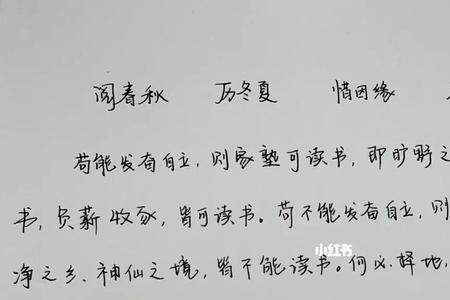 阅春秋 历冬夏 惜因缘
苟能发奋自立，则家塾可读书，即旷野之
书，负薪牧豕，皆可读书。苟不能发奋自立，则
小红书
净之乡、神仙之境，皆不能读书。何必择地，